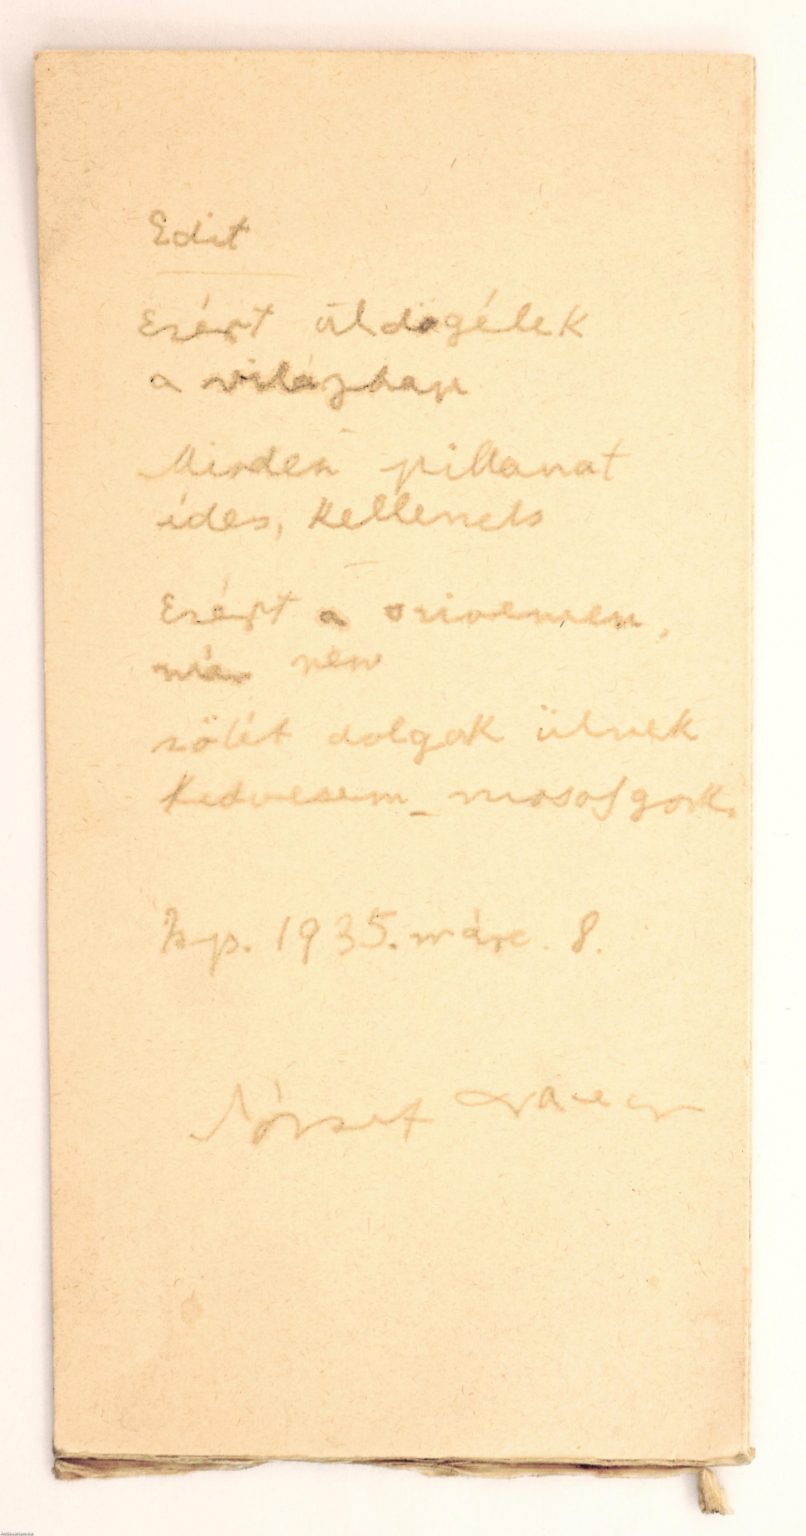 Edit
Ezért üldögélek
a világban
Minden pillanat
édes,
Ezért a szivemen,
már nem
sötét dolgok ülnek
Kedvesem_ mosolygok.
Bp. 1935. márc. 8.
József